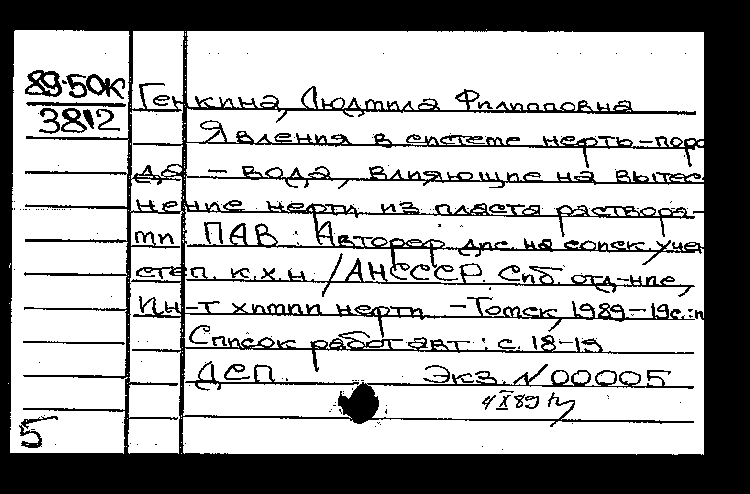 89-50к
3812
Генкина, Людмила Филипповна
Явления в системе нефть-поро
да - вода, влияющие на вытес
нение нефти из пласта раствора-
ми ПАВ: Автореф. дис. на соиск. учен
степ. к.х.н. / АН СССР. Сиб. отд-ние,
Ин-т химии нефти. - Томск, 1989 - 19с.:и
Список работ авт.: с. 18-19
ДСП. Экз. N 00005
4 X 89
5